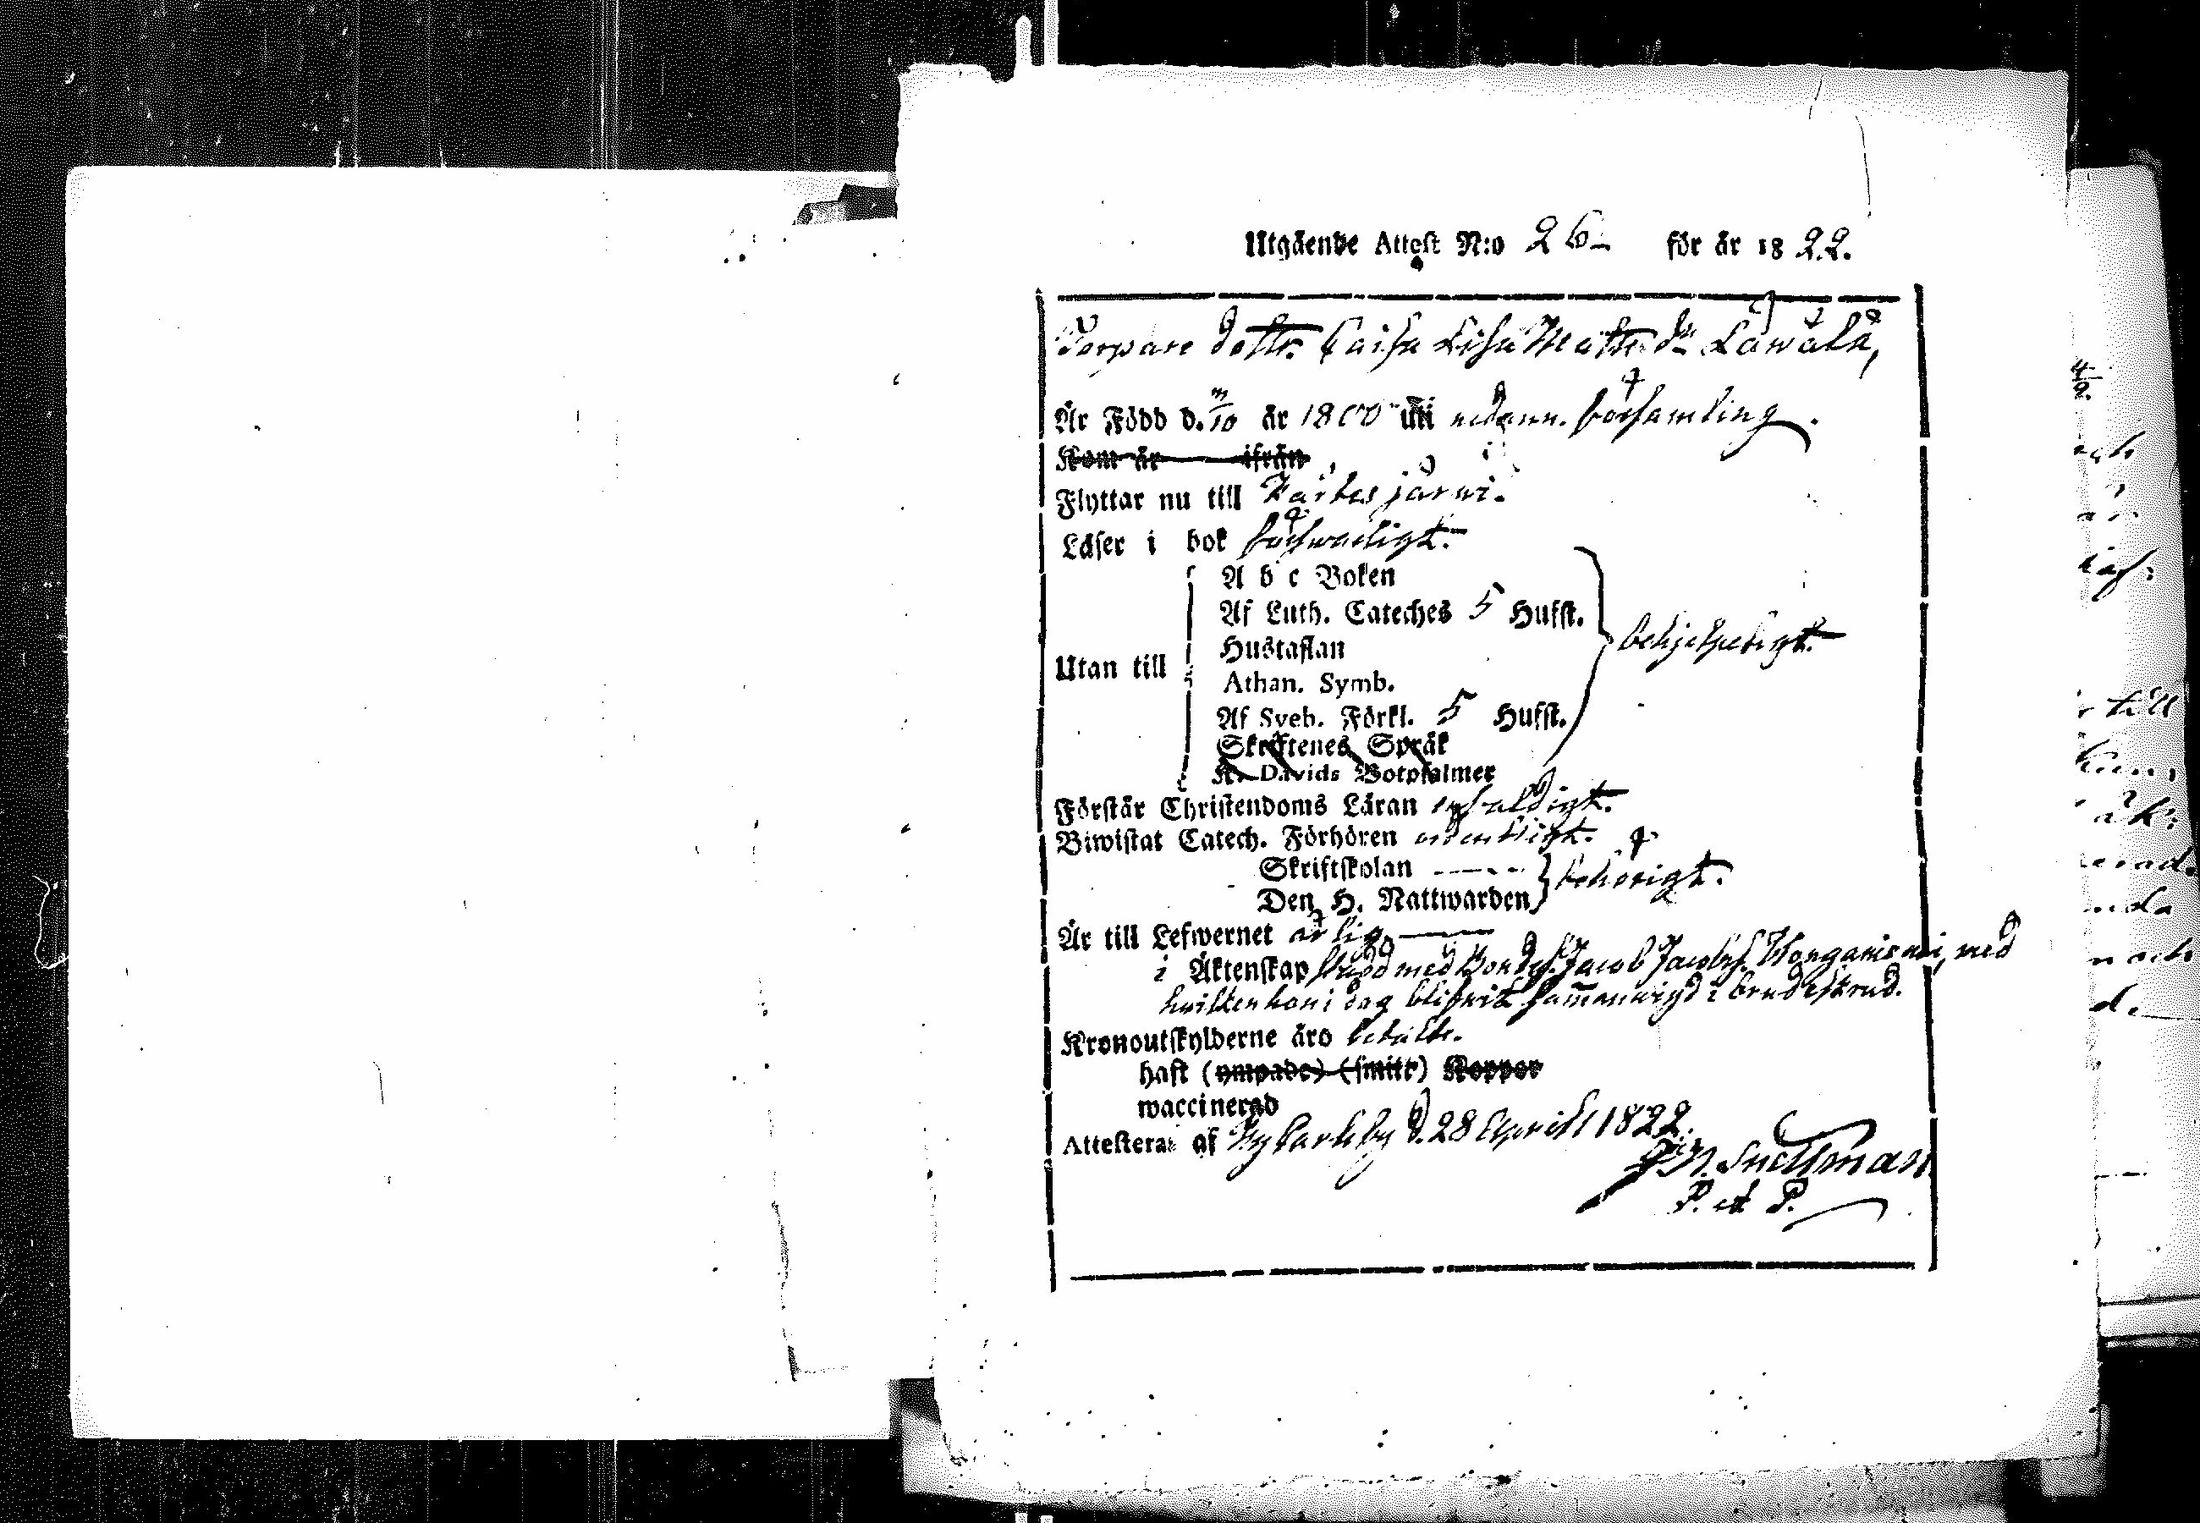 Utgående Attest N:o 26 för år 1822.
Torpare dottr. Caisa Lisa Matts dr Låwålå,
Är Född d. m/10 år 1800 uti nedann. församling.
Kom år ifrån
Flyttar nu till Kortesjärwi.
Läser i bok försvarligt.
A b c Boken
Af Luth. Cateches 5 Hufst.
Hustaflan behjelpeligt.
Utan till
Athan. Symb.
Af Sveb. Förkl. 5 Hufst.
Skriftenes Språk
K. Davids Botpsalmer
Förstår Christendoms Läran enfaldigt.
Biwistat Catech. Förhören ordentligt.
Skriftskolan
Den H. Nattwarden behörigt.
Är till Lefwernet ärlig
i Äktenskap med Bondes. Jacob Jacobs. med
hvilken hon i dag blifwit sammanwigd i brudeskrud.
Kronoutskylderne äro betalte.
haft (ympade) (smitt) Koppor
waccinerad
Attesterar af Ny Carleby d. 28 April 1822.
Snellman
P. et P.
4/2
till